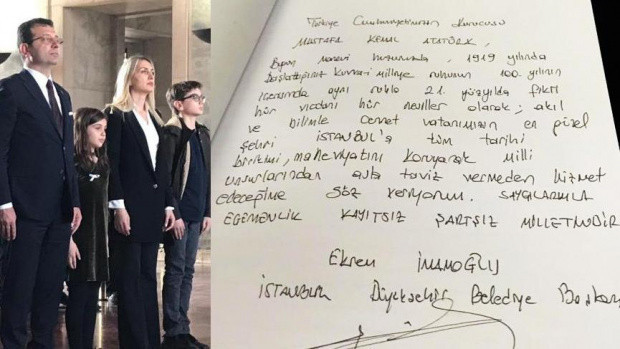 Türkiye Cumhuriyetimizin Kurucusu
MUSTAFA KEMAL ATATÜRK,
Bugün manevi huzurunda, 1919 yılında
başlattığınız kuvva-i milliye ruhunun 100. yılının
içerisinde aynı ruhla 21. yüzyılda fikri
hür vicdanı hür nesiller olarak; akıl
ve bilimle cennet vatanımızın en güzel
şehri İSTANBUL'a tüm tarihi
birikimi, maneviyatını koruyarak milli
unsurlarından asla taviz vermeden hizmet
edeceğime söz veriyorum. SAYGILARIMLA
EGEMENLİK KAYITSIZ ŞARTSIZ MİLLETİNDİR
Ekrem İMAMOĞLU
İSTANBUL Büyükşehir Belediye Başkanı